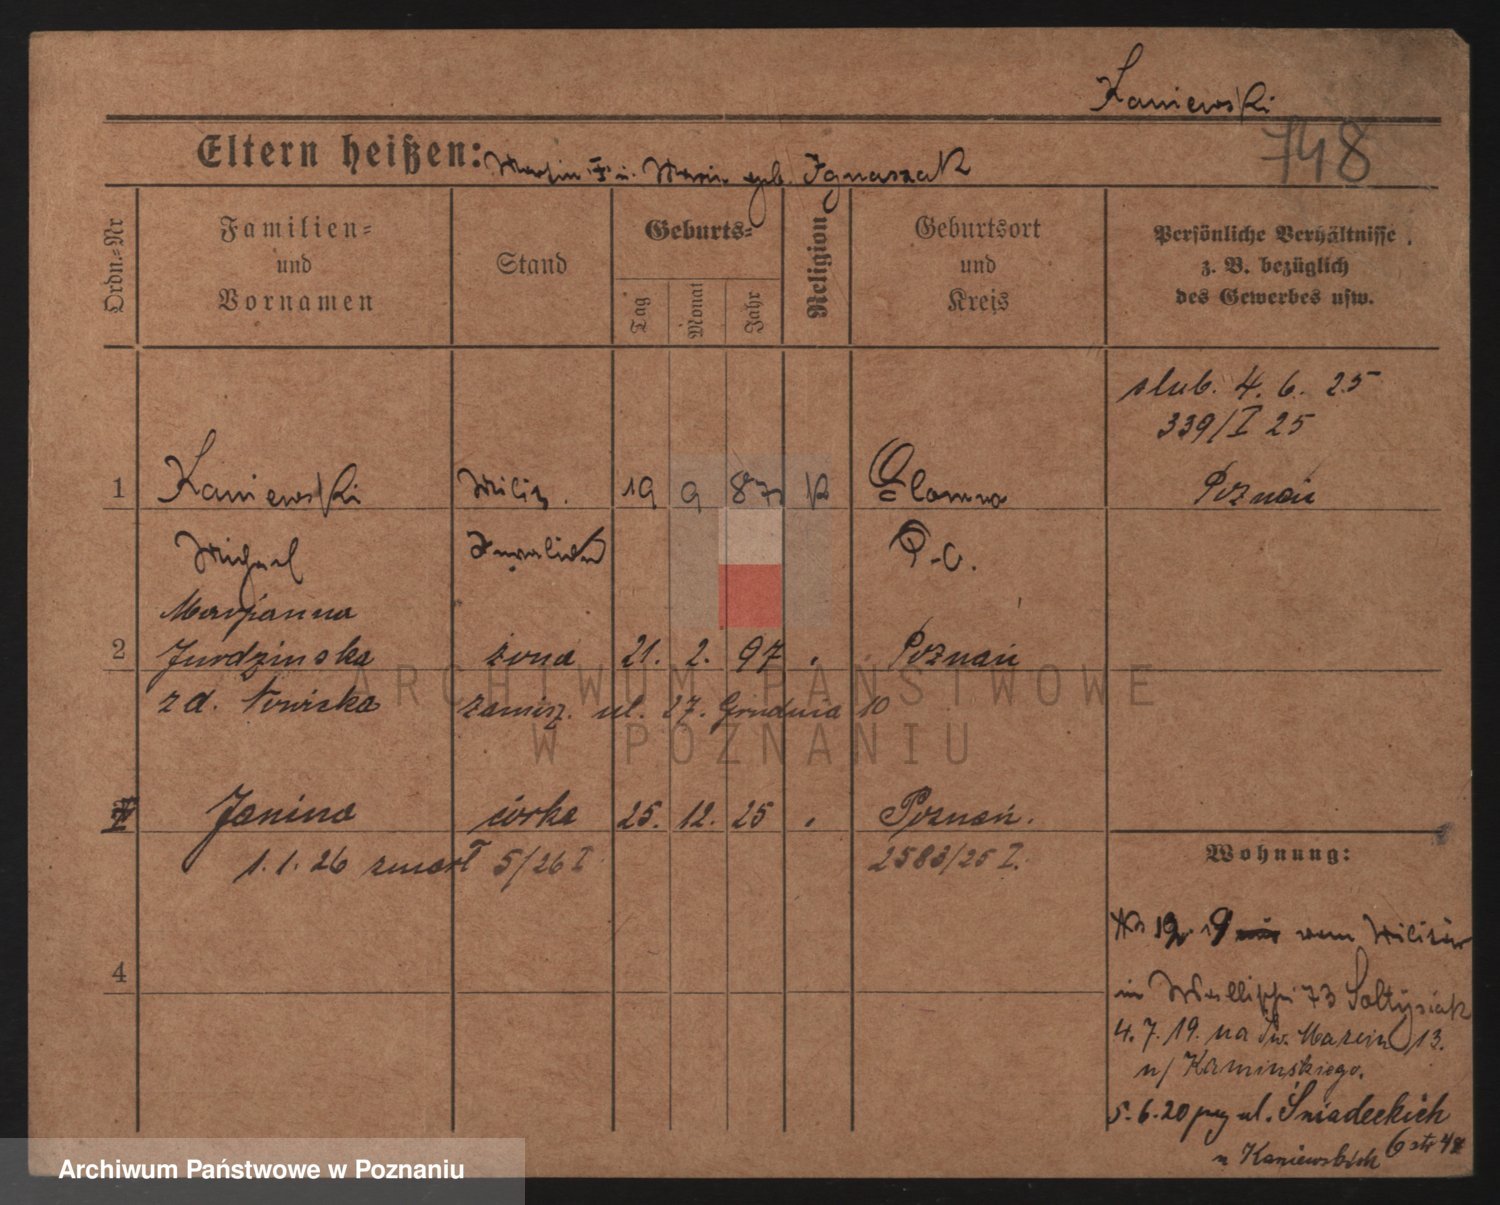 Kaniewski
748
Eltern heißen: Martin † u. Marie geb. Ignaszak
Ordn.-Nr
Familien- und Vornamen
Stand
Geburts-
Tag
Monat
Jahr
Religion
Geburtsort und Kreis
Persönliche Verhältnisse z. B. bezüglich des Gewerbes usw.
ślub. 4. 6. 25
339/I 25
1 Kaniewski 19 9 87 K Glowno Poznań
Michael Invalide P-O.
Maryanna
2 Jurdzinska żona 21. 2. 97 Poznań
zd. Nowicka zamiesz. ul. 27. Grudnia 10
Janina córka 25. 12. 25 Poznań.
1. 1. 26 zmarł 5/26 I 2583/25 I.
Wohnung:
19 vom Militär
4
in Wallischei 73 Sołtysiak
4. 7. 19. na Św. Marcin 13.
u/ Kaminskiego.
5. 6. 20 ul. Śniadeckich
u Kaniewskich 6
ARCHIWUM PAŃSTWOWE
W POZNANIU
Archiwum Państwowe w Poznaniu